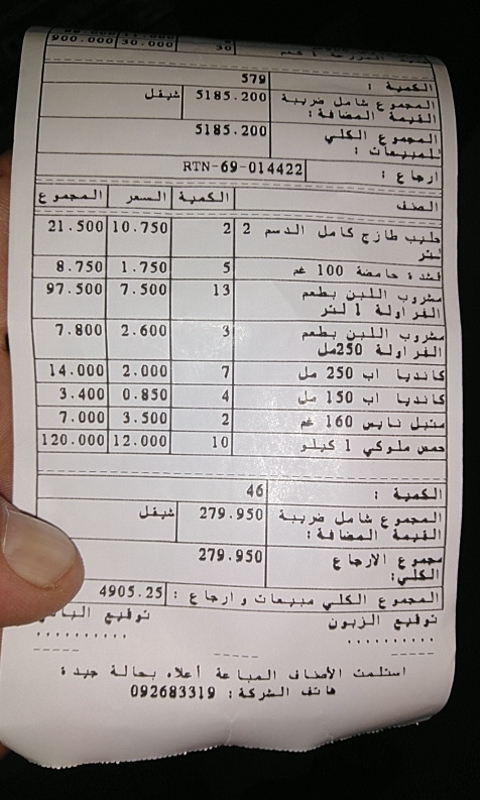 30 30.000 900.000
الكمية : 579
المجموع شامل ضريبة القيمة المضافة : 5185.200 شيقل
المجموع الكلي للمبيعات : 5185.200
ارجاع : RTN-69-014422
الصنف الكمية السعر المجموع
حليب طازج كامل الدسم 2 لتر 2 10.750 21.500
قشدة حامضة 100 غم 5 1.750 8.750
مشروب اللبن بطعم الفراولة 1 لتر 13 7.500 97.500
مشروب اللبن بطعم الفراولة 250مل 3 2.600 7.800
كانديا اب 250 مل 7 2.000 14.000
كانديا اب 150 مل 4 0.850 3.400
متبل نايس 160 غم 2 3.500 7.000
حمص ملوكي 1 كيلو 10 12.000 120.000
الكمية : 46
المجموع شامل ضريبة القيمة المضافة : 279.950 شيقل
مجموع الارجاع الكلي: 279.950
المجموع الكلي مبيعات و ارجاع : 4905.25
توقيع الزبون توقيع
استلمت الأصناف المباعة أعلاه بحالة جيدة
هاتف الشركة : 092683319